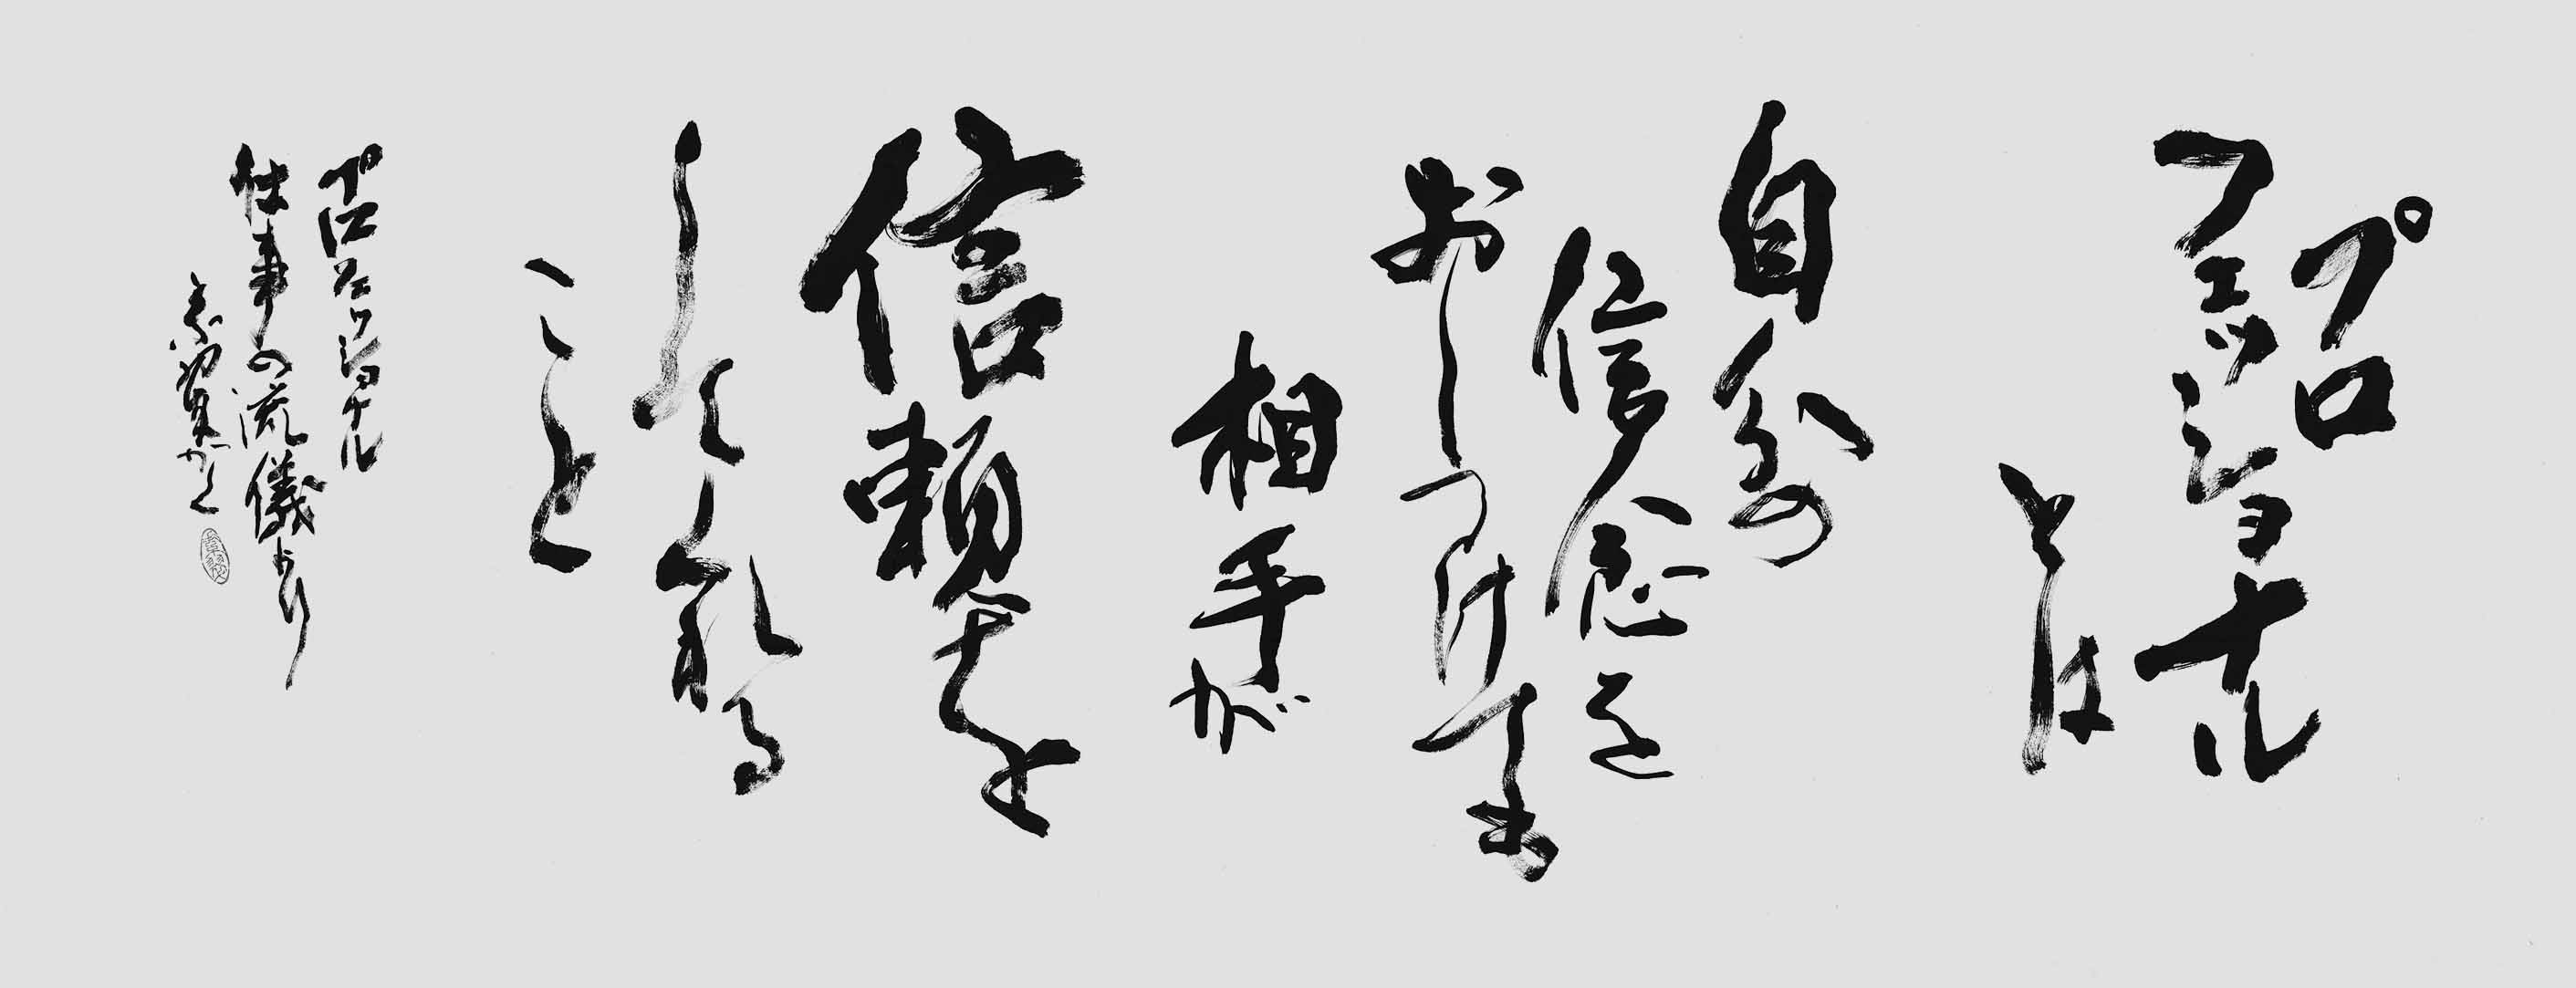 プロ
フェッショナル
とは
自分の
信念を
おしつけても
相手が
信頼を
して衣る
こと
プロフェッショナル
仕事の流儀より
かく